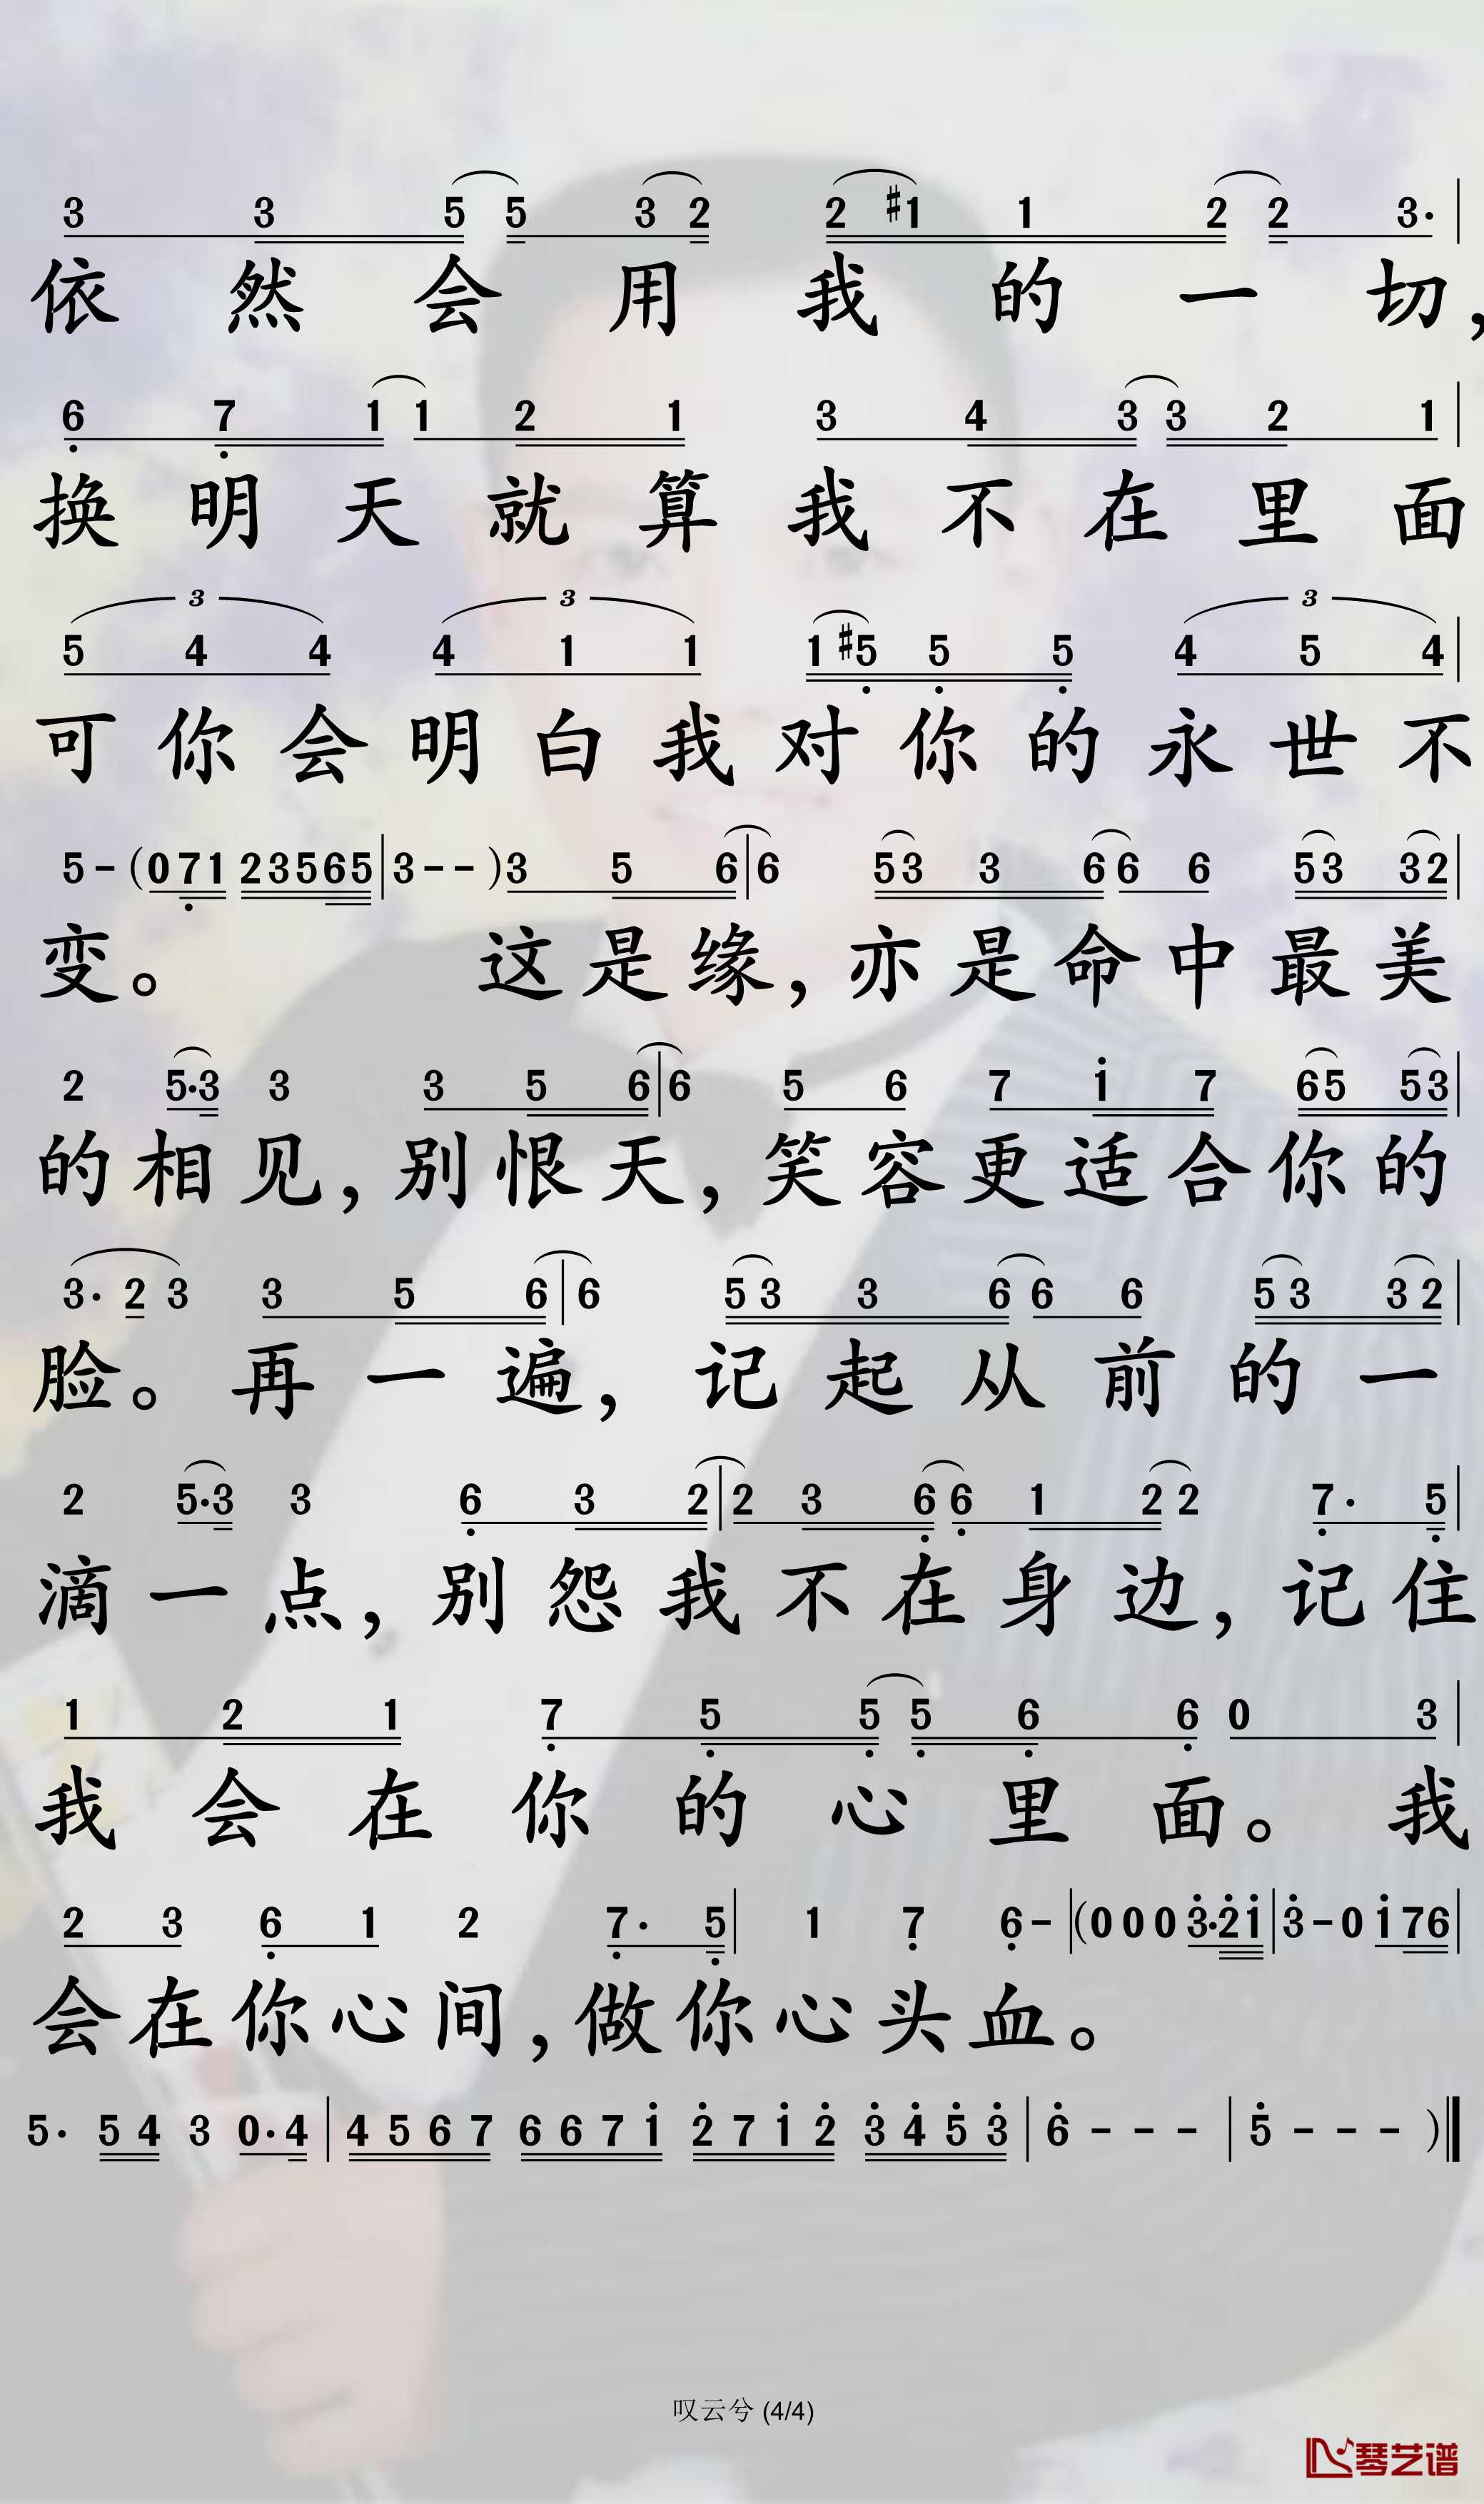 3 3 5 5 3 2 2 #1 1 2 2 3· |
依然会用我的一切,
6 7 1 1 2 1 3 4 3 3 2 1 |
换明天就算我不在里面
3 3 3
5 4 4 4 1 1 1 #5 5 5 4 5 4 |
可你会明白我对你的永世不
5 - (0 7 1 2 3 5 6 5 | 3 - - ) 3 5 6 | 6 5 3 3 6 6 6 5 3 3 2 |
变。这是缘,亦是命中最美
2 5·3 3 3 5 6 | 6 5 6 7 1 7 6 5 5 3 |
的相见,别恨天,笑容更适合你的
3· 2 3 3 5 6 | 6 5 3 3 6 6 6 5 3 3 2 |
脸。再一遍,记起从前的一
2 5·3 3 6 3 2 | 2 3 6 6 1 2 2 7· 5 |
滴一点,别怨我不在身边,记住
1 2 1 7 5 5 5 6 6 0 3 |
我会在你的心里面。我
2 3 6 1 2 7· 5 | 1 7 6 - | (0 0 0 3·2 1 | 3 - 0 1 7 6 |
会在你心间,做你心头血。
5· 5 4 3 0·4 | 4 5 6 7 6 6 7 1 2 7 1 2 3 4 5 3 | 6 - - - | 5 - - - )
叹云兮 (4/4)
琴艺谱